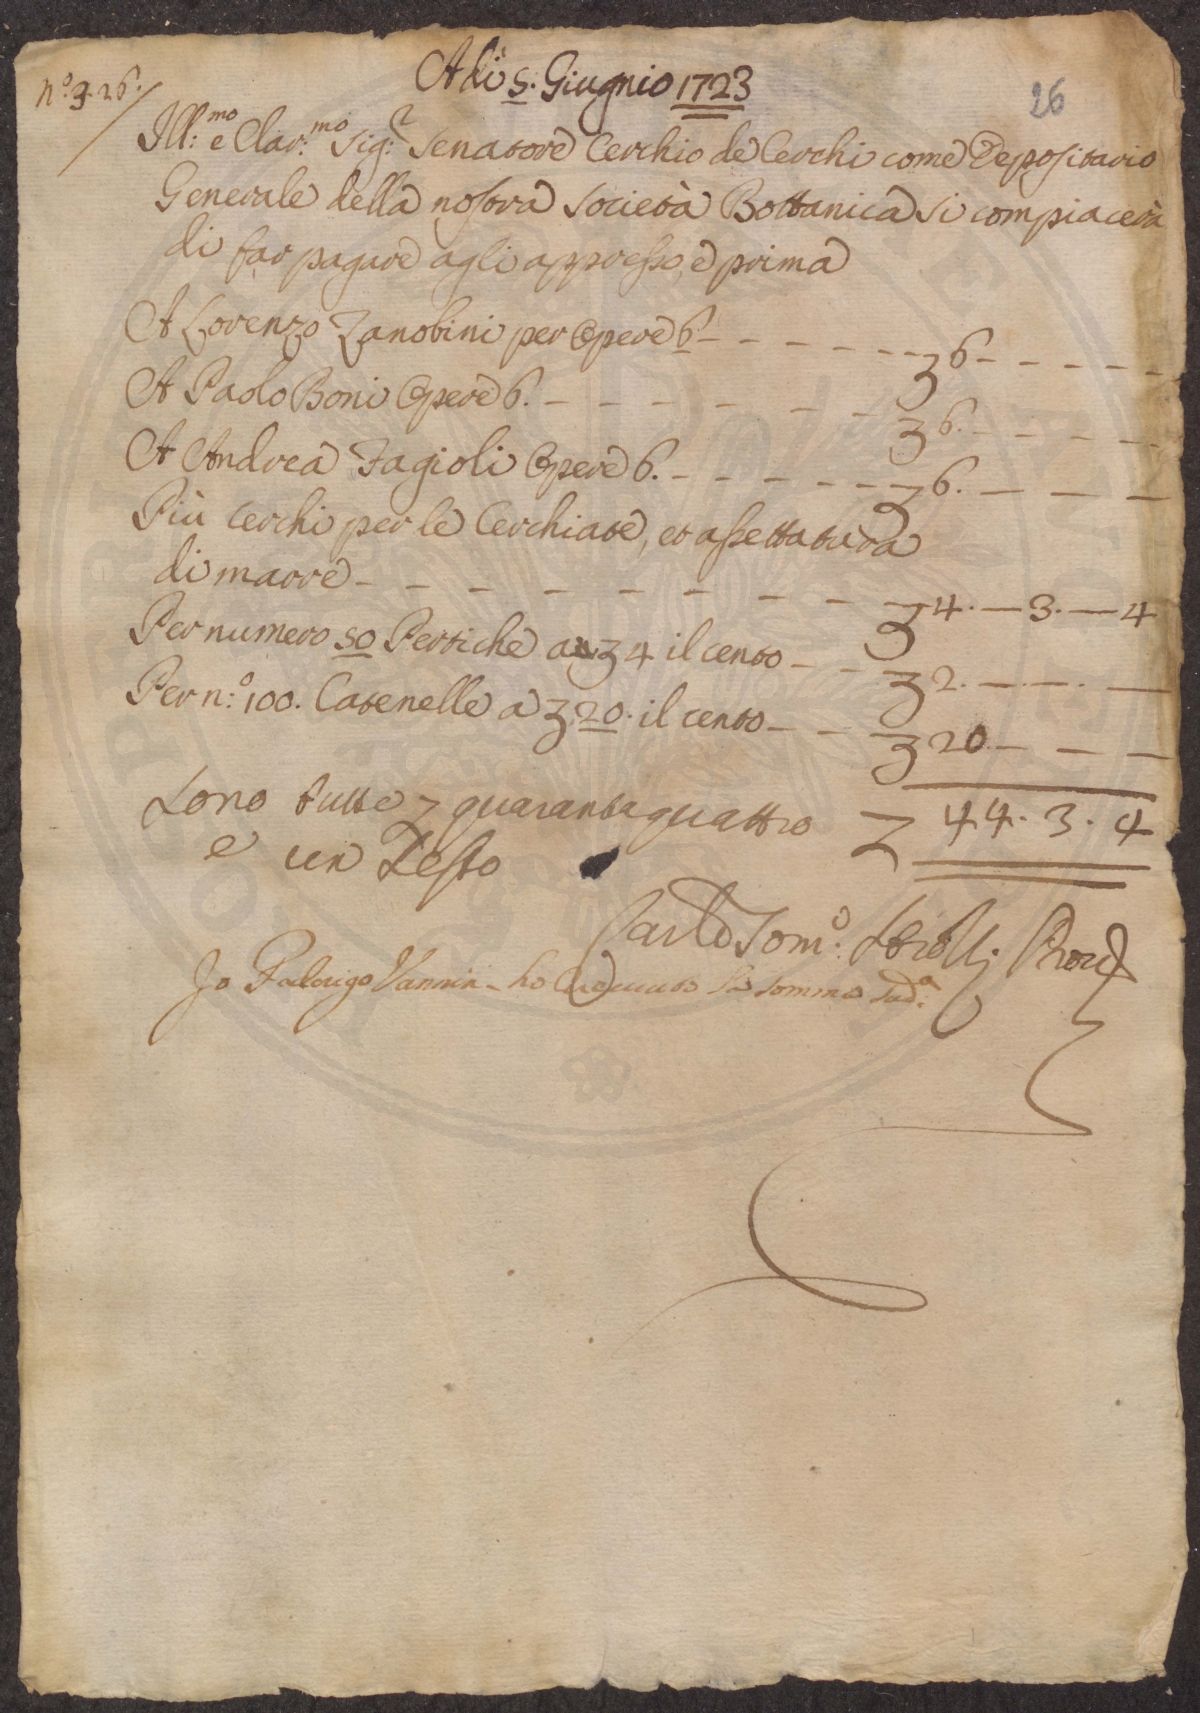 N.º 3. 26.
26
A dì 5. Giugnio 1723
Ill:mo e Clar:mo Sig:r Senatore Cerchio de Cerchi come Depositario
Generale della nostra Società Bottanica si compiacerà
di far pagare agli appresso, e prima
A Lorenzo Zanobini per Opere 6 — ʒ 6
A Paolo Boni Opere 6. — ʒ 6.
A Andrea Fagioli Opere 6. — ʒ 6.
Più Cerchi per le Cerchiate, et assettatura
di marre — ʒ 4. — 3. — 4
Per numero 50 Pertiche a ʒ 4 il cento — ʒ 2.
Per n:º 100. Catenelle a ʒ 20. il cento — ʒ 20
Sono tutte ʒ quarantaquattro ʒ 44. 3. 4
e un Testo
Carlo Tom:º
Io Vannini ho riceuuto la somma sud:a